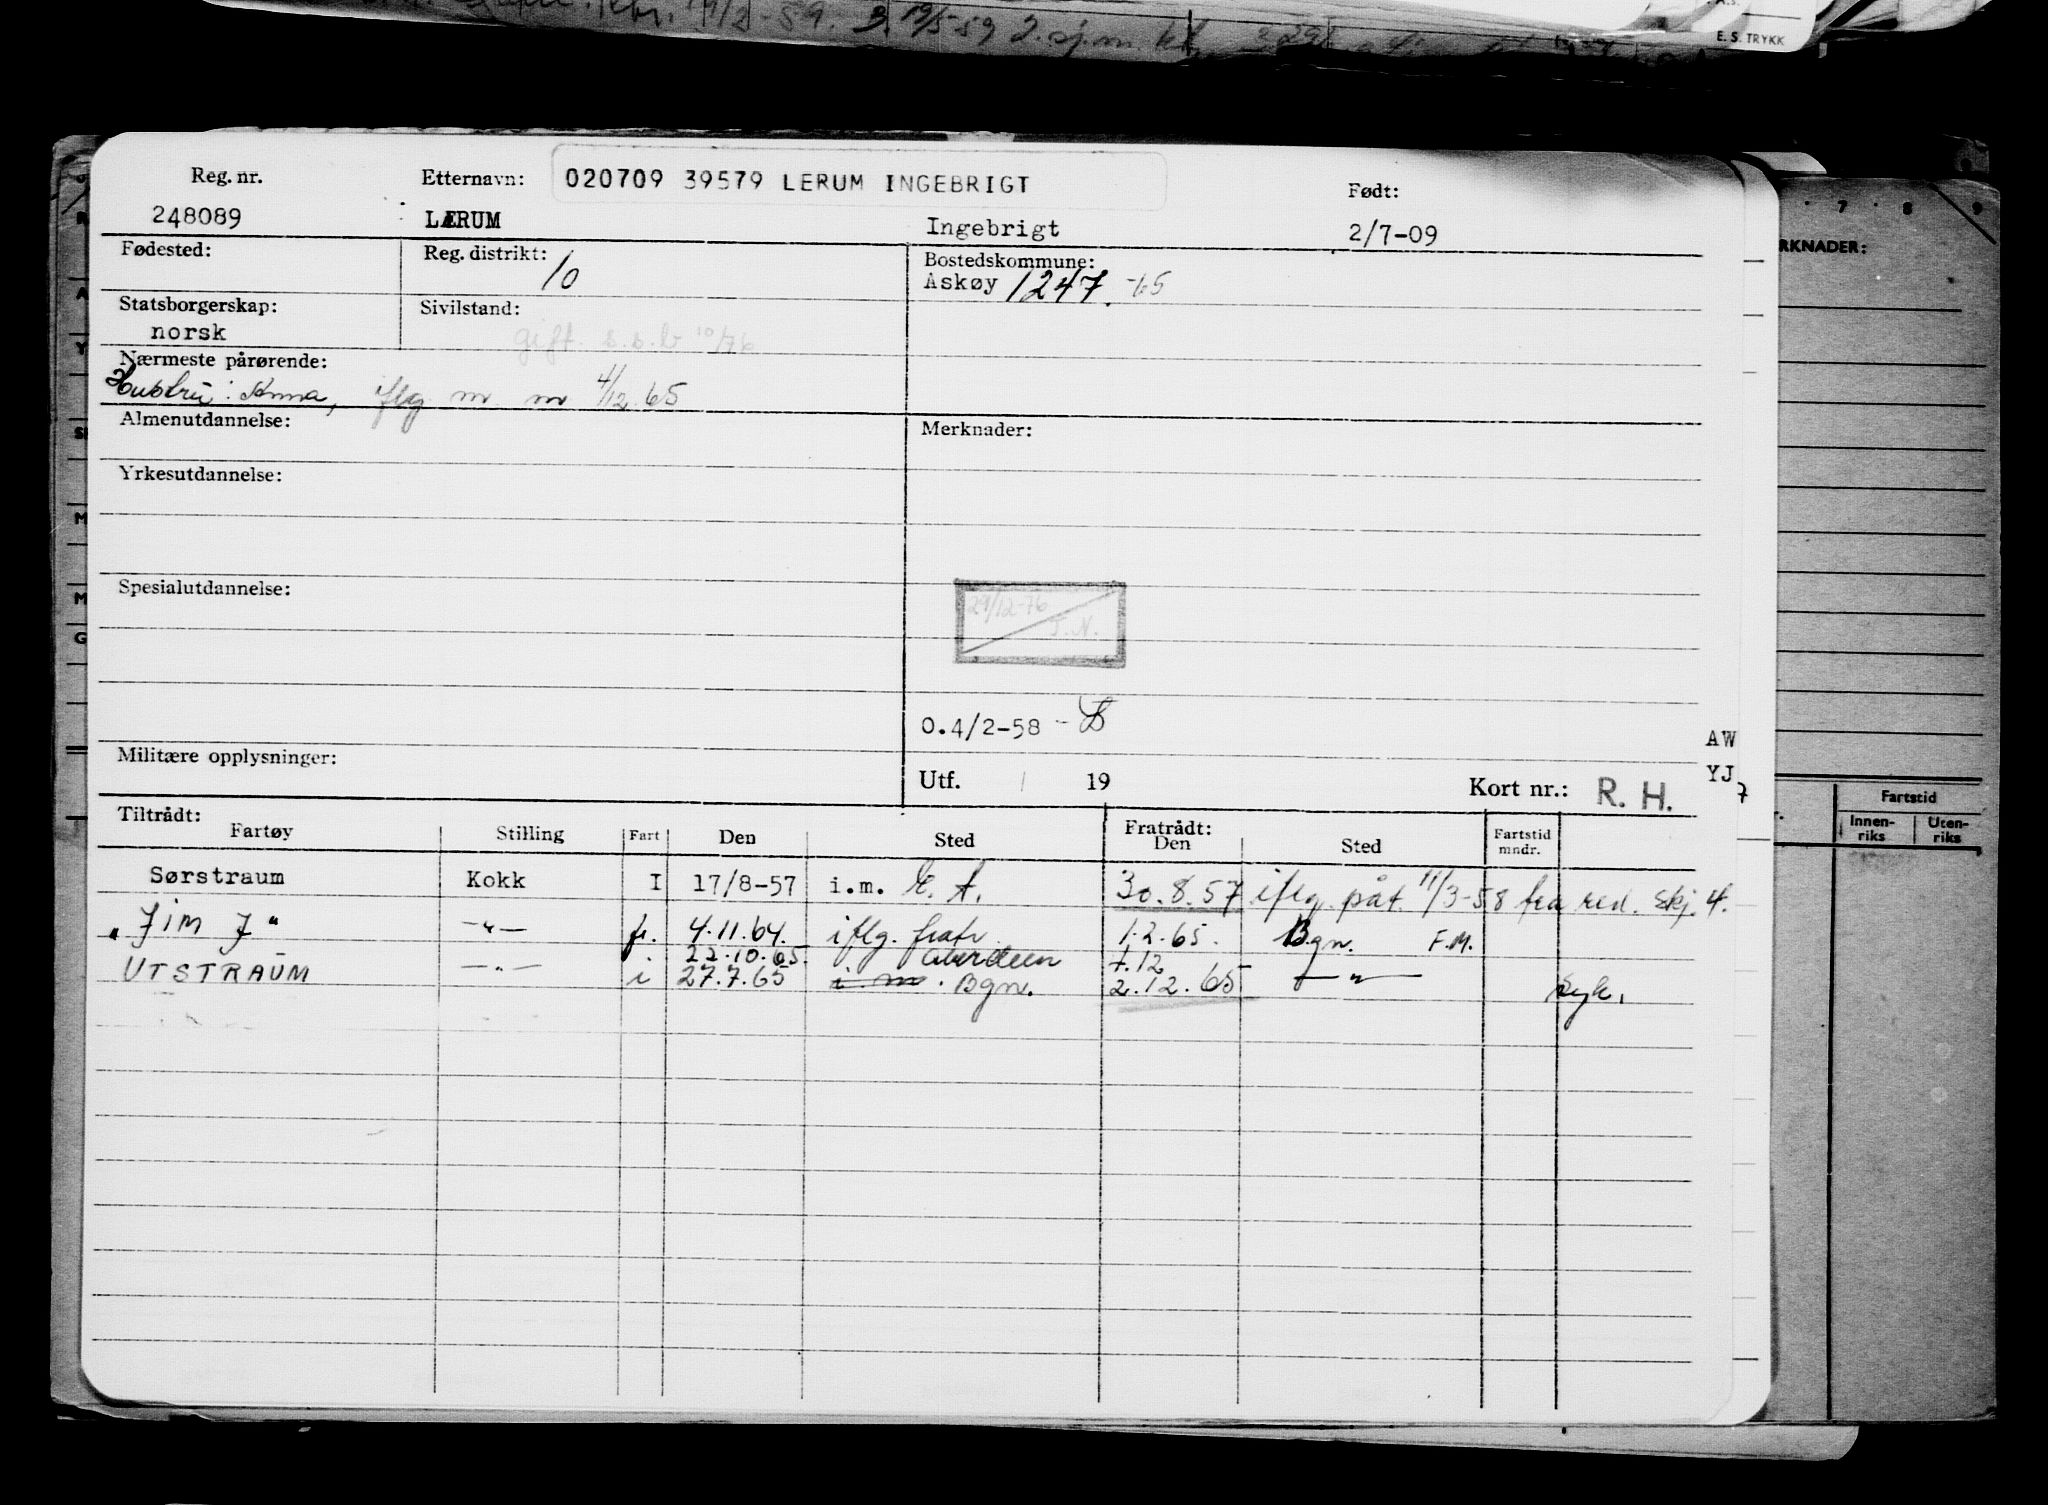 19/5-59
E. S. TRYKK
Reg. nr. Etternavn: 020709 39579 LERUM INGEBRIGT Født:
248089 LÆRUM Ingebrigt 2/7-09
Fødested: Reg. distrikt: 10 Bostedskommune:
Askøy 1247. -65
Statsborgerskap: Sivilstand:
norsk gift. s.s.b 10/76
Nærmeste pårørende:
Hustru: Anna, iflg m. m 4/12.65
Almenutdannelse: Merknader:
Yrkesutdannelse:
Spesialutdannelse:
29/12-76
T.N.
O.4/2-58 -
Militære opplysninger:
AW
YJ
Utf. 19 Kort nr.: R. H.
Tiltrådt: Fratrådt:
Fartøy Stilling Fart Den Sted Den Sted Fartstid mndr.
Sørstraum Kokk I 17/8-57 i.m. E. A. 30.8.57 iflg. påt. 11/3-58 fra red. Skj. 4.
"JIM J" -"- fr. 4.11.64. iflg. fratr. 1.2.65. Bgn. F.M.
22.10.65. Aberdeen 1.12
UTSTRAUM -"- i 27.7.65 i. m. Bgn. 2.12.65 -"- Syk.
7 8 9
RKNADER:
Fartstid
Innen-riks Uten-riks